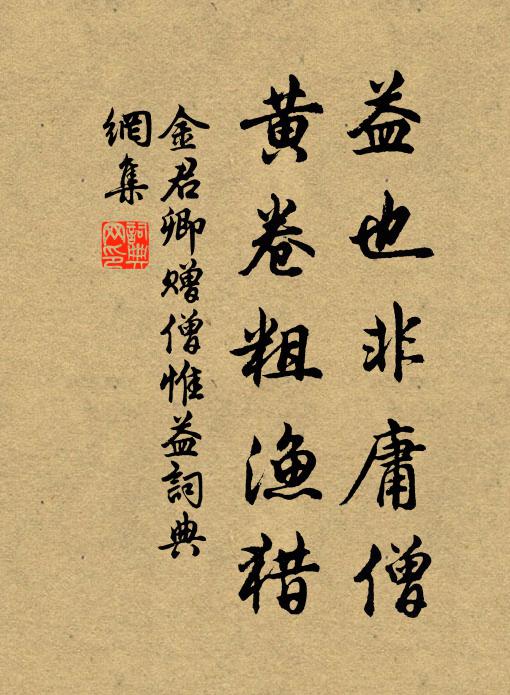 益也非庸僧
黄卷粗漁猎
金君卿赠僧惟益詞典
網集
詞典网印